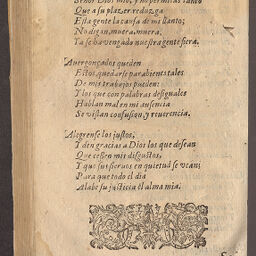 Señor Dios mio, y no permitas tanto
Que a su plazer reduzga
Esta gente la causa de mi llanto;
No digan, muera, muera,
Ya se ha vengado nuestra gente fiera.
Auergonçados queden
Estos, quedarse para bien tales
De mis trabajos pueden:
Y los que con palabras desiguales
Hablan mal en mi ausencia
Se vistan confusion, y reuerencia.
Alegrense los justos,
Y den gracias a Dios los que desean
Que cessen mis disgustos,
Y que sus sieruos en quietud se vean;
Para que todo el dia
Alabe su justicia el alma mia.